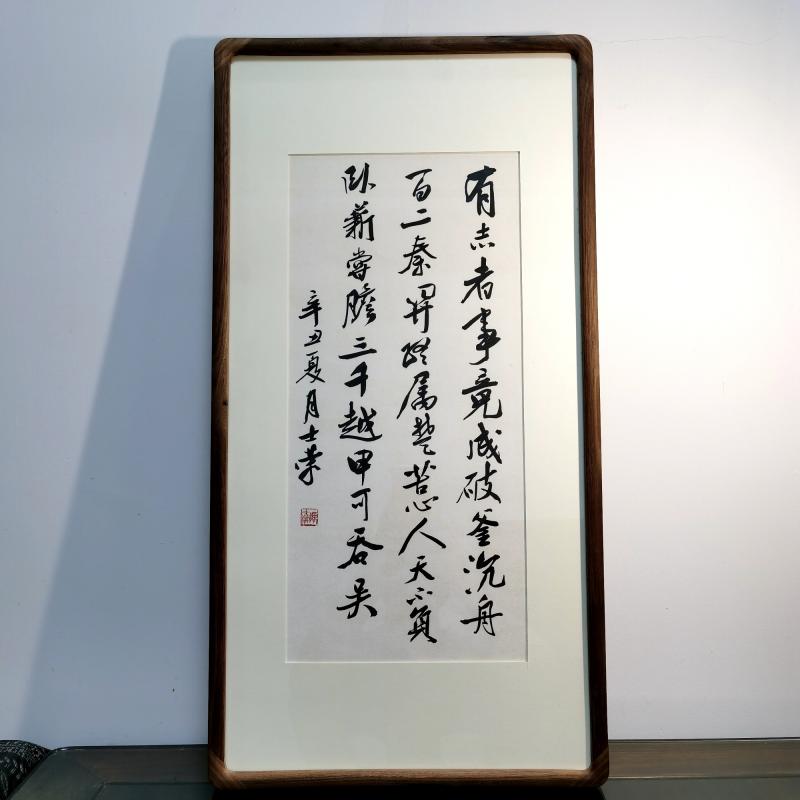 有志者事竟成破釜沉舟
百二秦关终属楚苦心人天不负
卧薪尝胆三千越甲可吞吴
辛丑夏月士荣